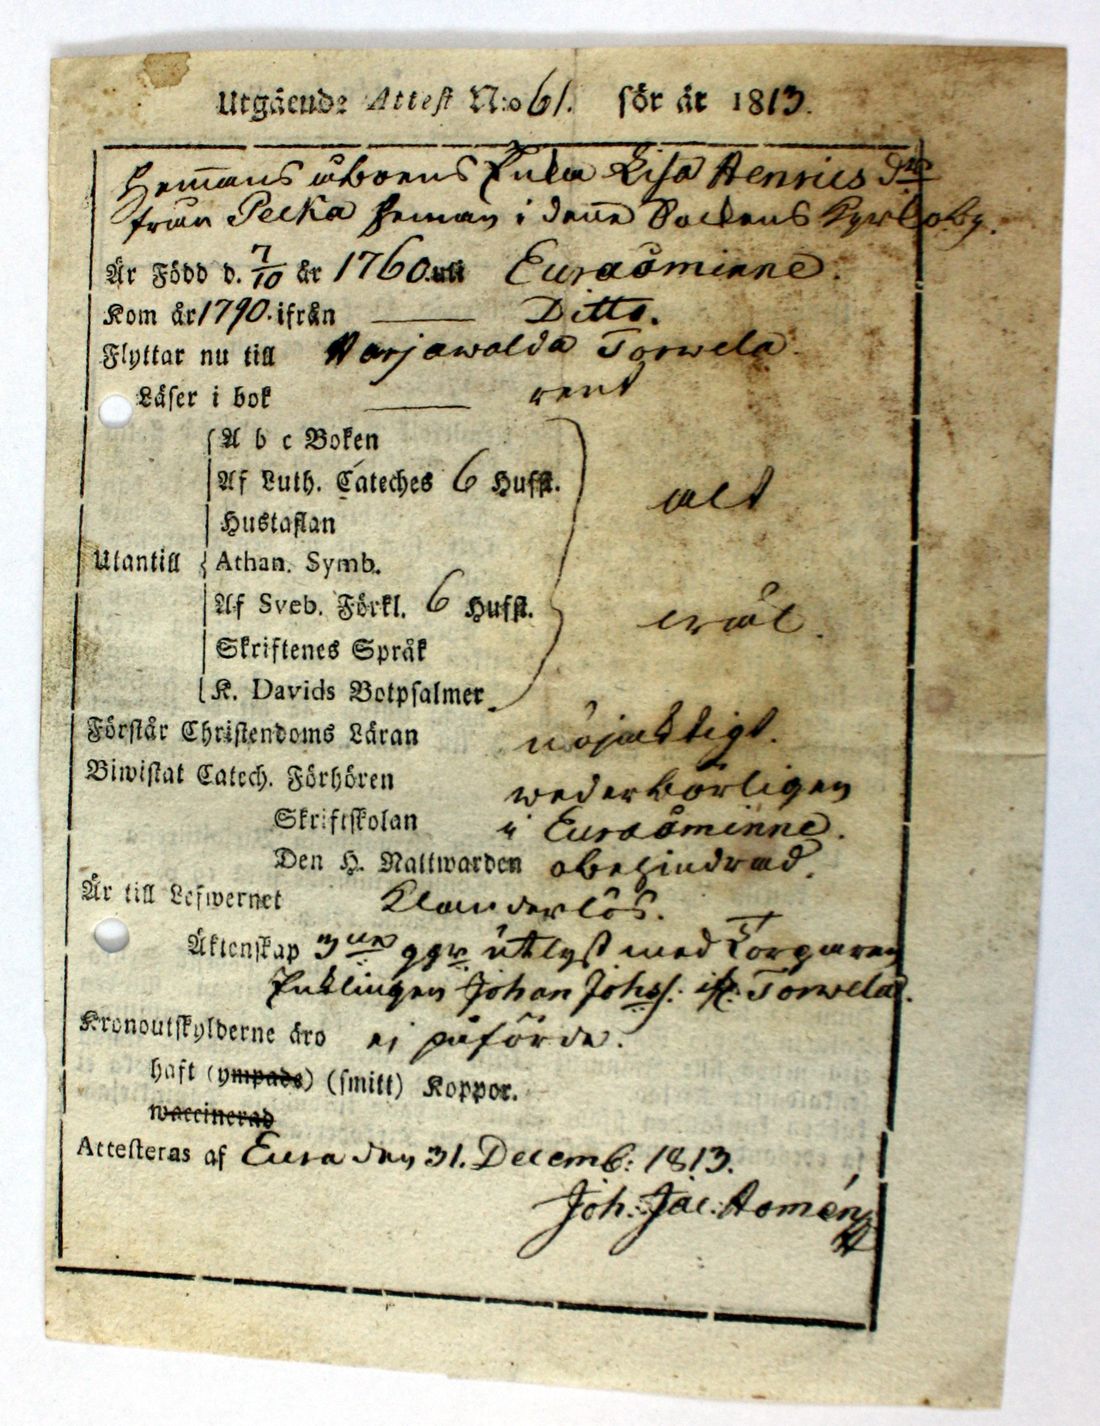 Utgående Attest N:o 61. för år 1813.
Hemmans åboens Enka Lisa Henrics dr
från Pecka heman i denne Sockens Kyrkoby.
Är Född d. 7/10 år 1760. uti Euraåminne.
Kom år 1790. ifrån — Ditto.
Flyttar nu till Harjawalda Torwela.
Läser i bok — rent
A b c Boken
Af Luth. Cateches 6 Hufst. alt
Hustaflan
Utantill Athan. Symb.
Af Sveb. Förkl. 6 Hufst. wäl.
Skriftenes Språk
K. Davids Botpsalmer
Förstår Christendoms Läran nöjaktigt.
Biwistat Catech. Förhören wederbörligen
Skriftskolan i Euraåminne.
Den H. Nattwarden obehindrad.
Är till Lefwernet Klanderlös.
Äktenskap 3ne ggr utlyst med Torparen
Enklingen Johan Johs. ifr. Torwela.
Kronoutskylderne äro ej påförde.
haft (ympade) (smitt) Koppor.
waccinerad
Attesteras af Eura den 31. Decemb: 1813.
Joh. Jac. Homén